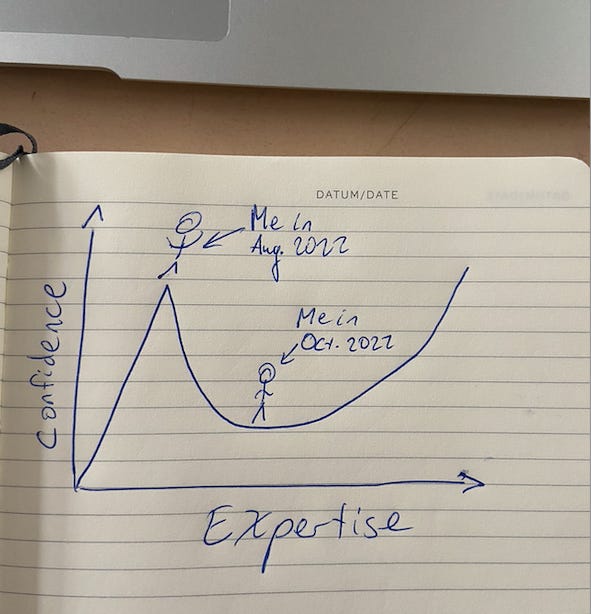 DATUM/DATE
Me in
Aug. 2022
Me in
Oct. 2022
Confidence
Expertise